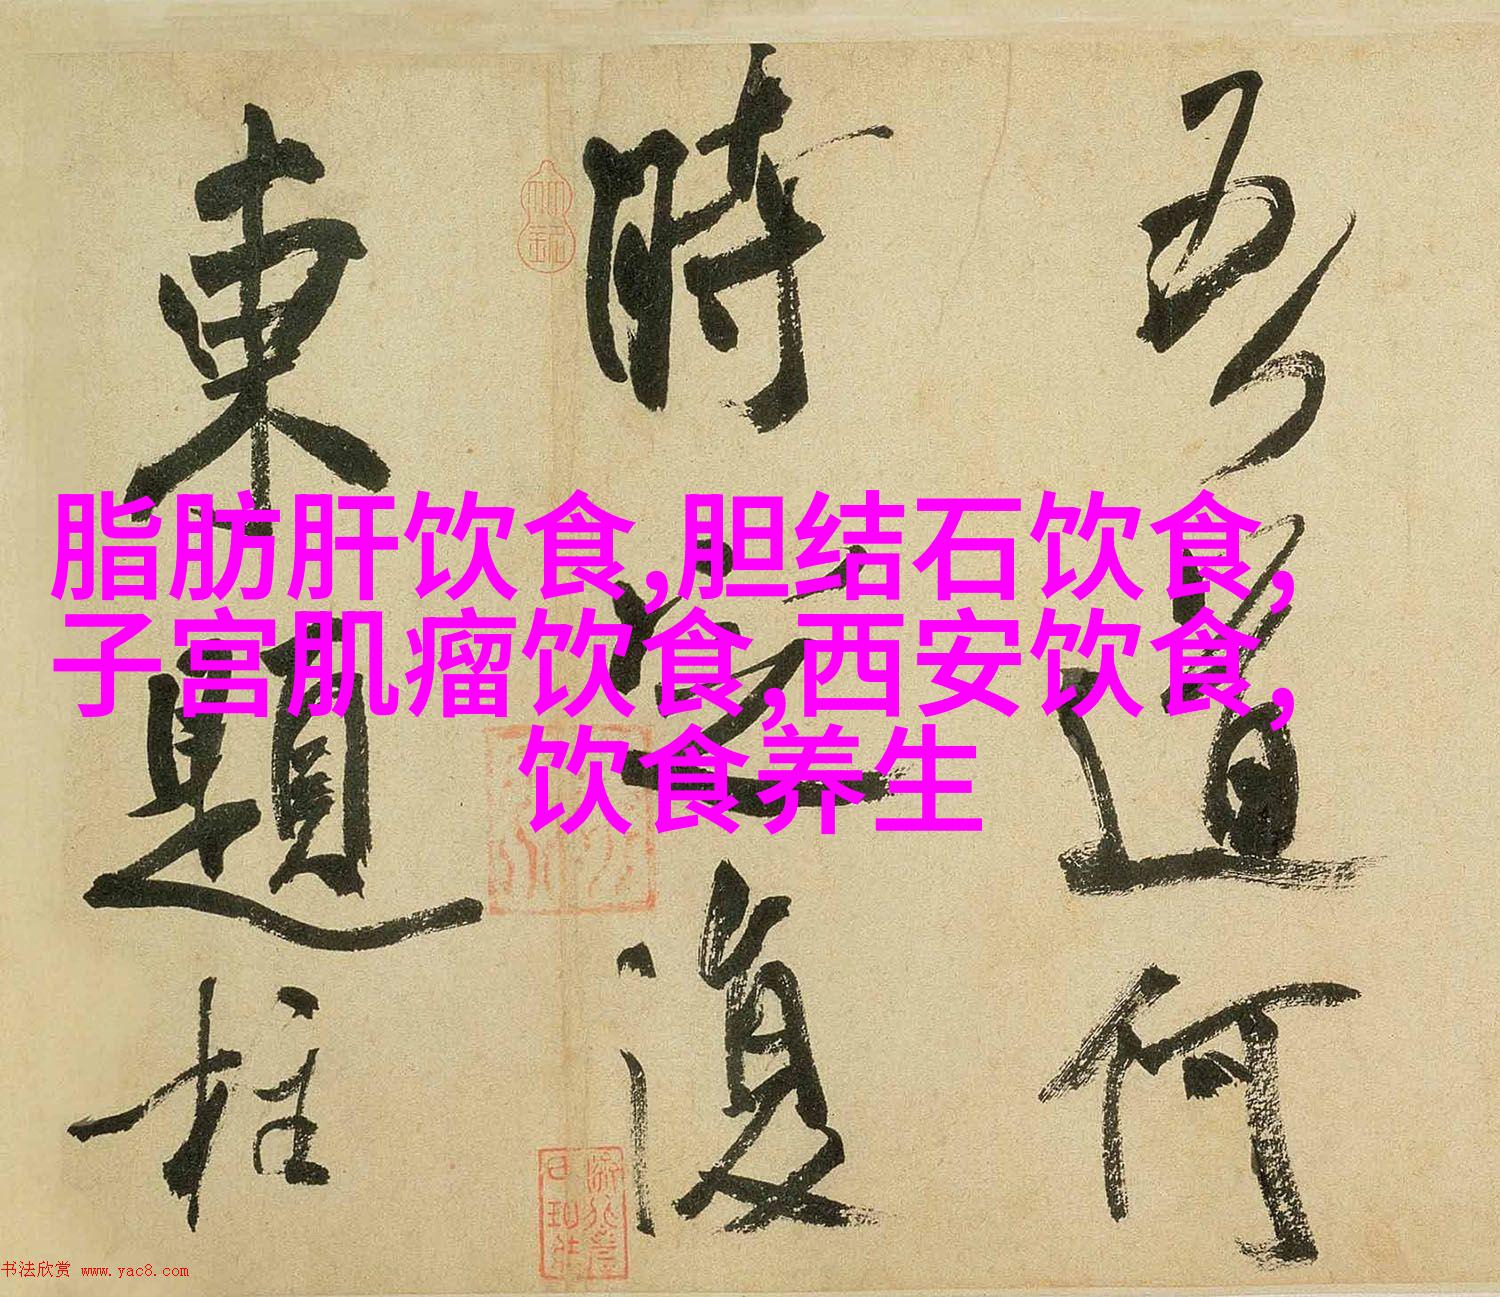 脂肪肝饮食,胆结石饮食,
子宫肌瘤饮食,西安饮食,
饮食养生
吾道何
時定復
東題柱
书法欣赏 www.yac8.com